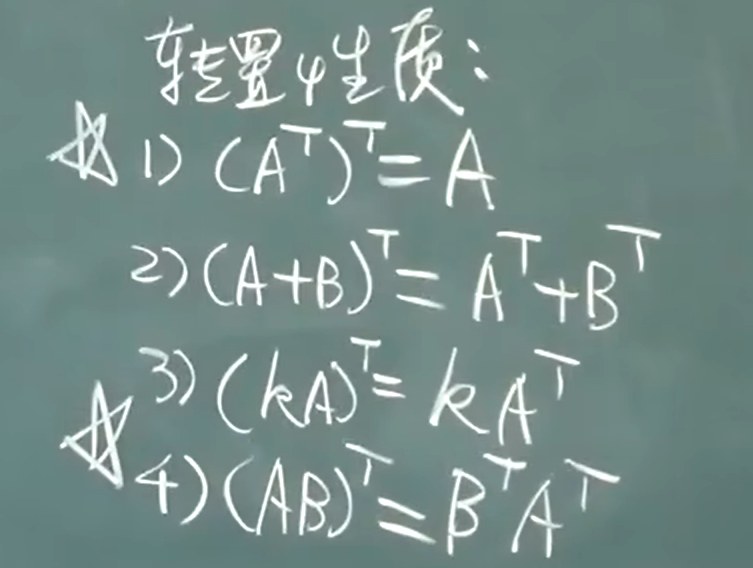 转置性质:
☆ 1) (Aᵀ)ᵀ = A
2) (A+B)ᵀ = Aᵀ+Bᵀ
3) (kA)ᵀ = kAᵀ
☆ 4) (AB)ᵀ = BᵀAᵀ